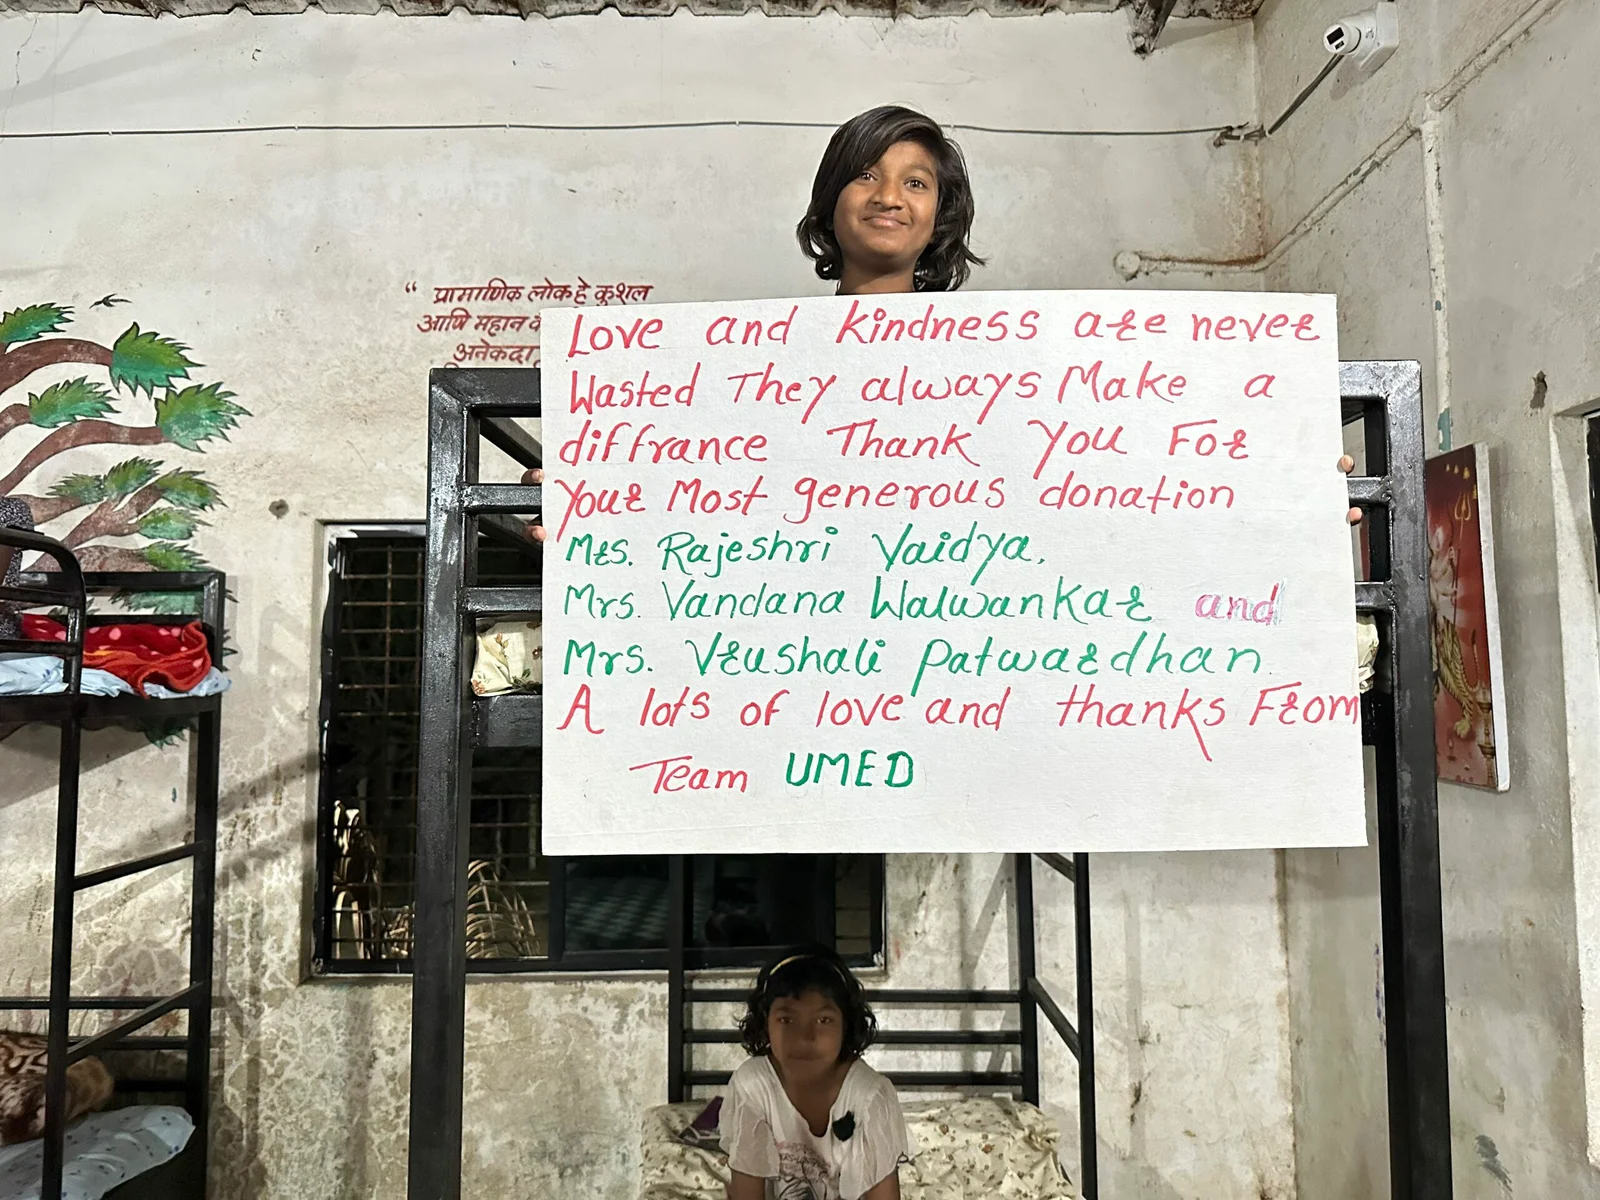 “ प्रामाणिक लोक हे कुशल
आणि महान
अनेकदा
Love and kindness are never
Wasted They always Make a
diffrance Thank You For
Your Most generous donation
Mrs. Rajeshri Vaidya,
Mrs. Vandana Walwankar and
Mrs. Vrushali Patwardhan
A lots of love and thanks From
Team UMED